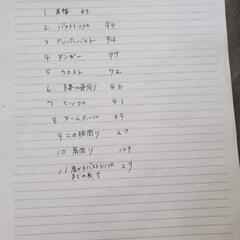 1 肩幅 43
2 バストトップ 94
3 アンダーバスト 94
4 アンダー 77
5 ウエスト 72
6 86
7 ヒップ 91
8 アームホール 49
9 二の腕周り 27
10 肩周り 109
11 肩からバストトップ 29
までの長さ